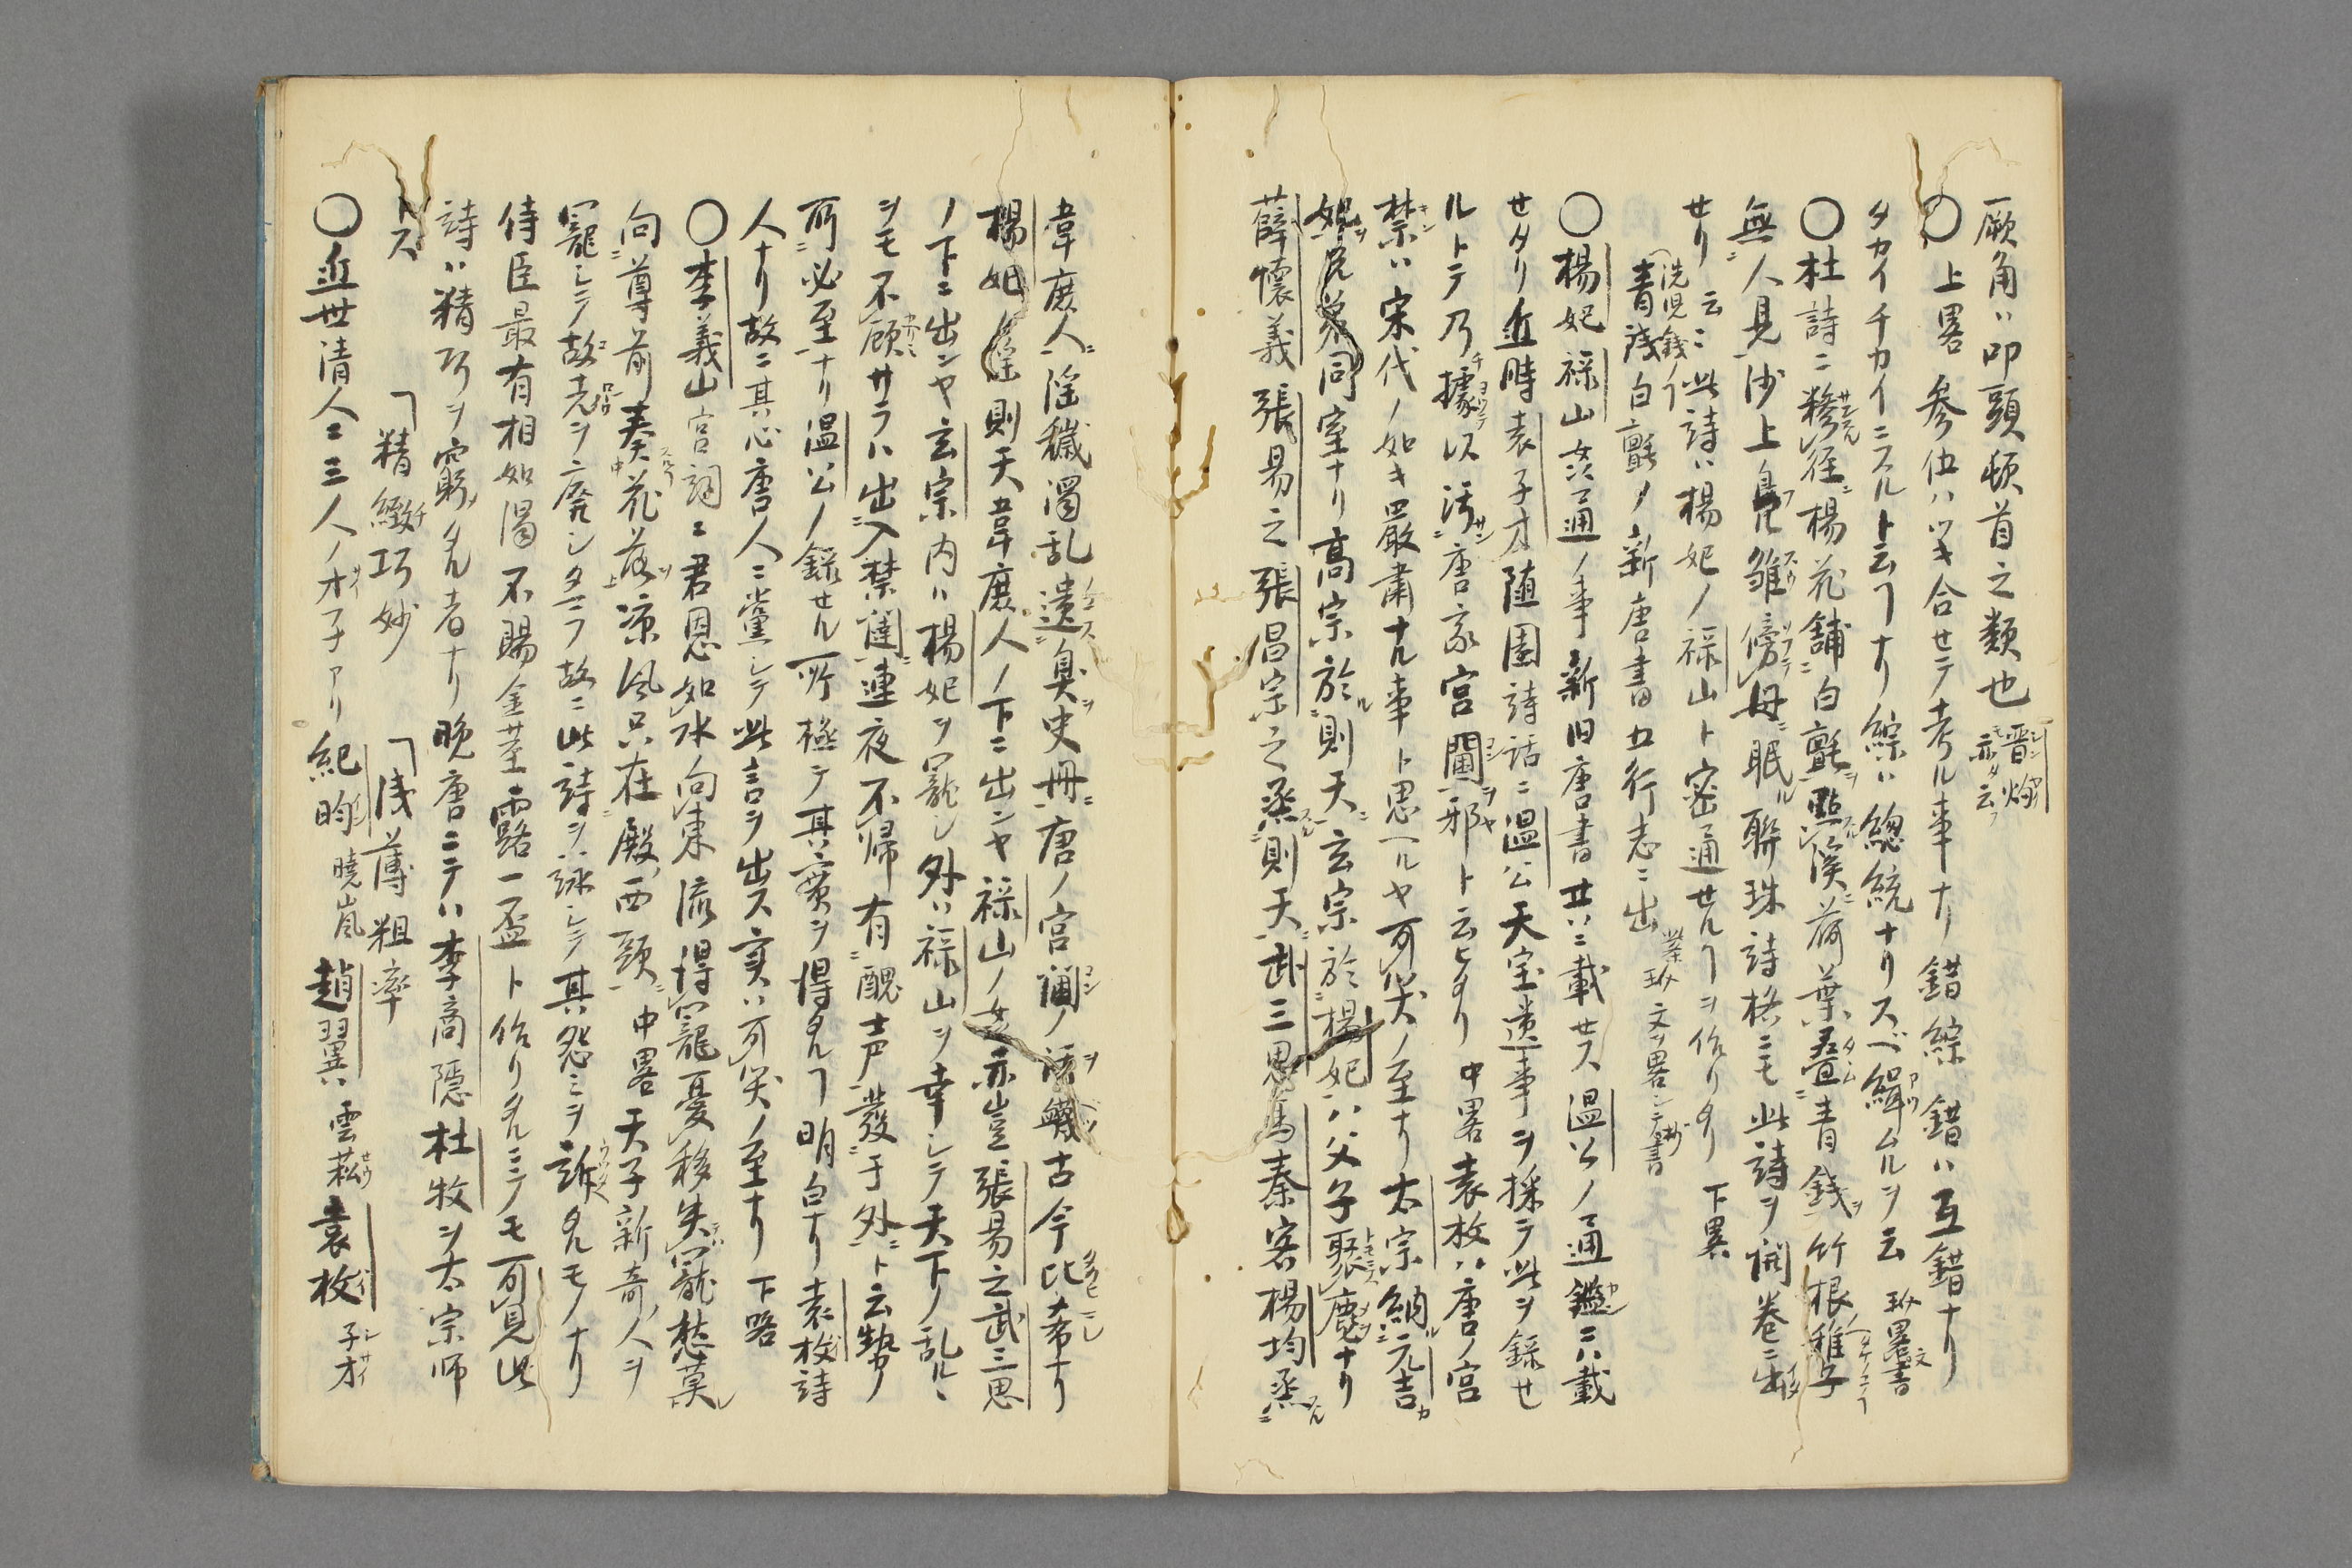 厥角ハ叩頭頓首之類也 晋灼亦タ云フ
〇上畧 参伍ハツキ合セテ考ル事ナリ 錯綜 錯ハ互錯ナリ
タカイチカイニスルト云フナリ 綜ハ総統ナリスベ緝ムルヲ云 畧文書
〇杜詩ニ糝径楊花舗白氈點溪荷葉疊青銭竹根稚子
無人見沙上鳧雛傍母眠聯珠詩格ニモ此詩ヲ開巻ニ出
せリ 云ニ此詩ハ楊妃ノ禄山ト密通せルヿヲ作リタリ 下畧
洗児銭 青銭白氈ノ新唐書五行志ニ出 文ヲ畧シテ抄書
〇楊妃禄山姦通ノ事新旧唐書共ニ載せス温公ノ通鑑ニハ載
せタリ近時袁子才随園詩話ニ温公天宝遺事ヲ採テ此ヲ録せ
ルトテ乃據以汚唐家宮闈邪ト云ヒタリ 中畧 袁枚ハ唐ノ宮
禁ハ宋代ノ如キ嚴肅ナル事ト思ヘルヤ可笑ノ至ナリ太宗納元吉
妃兄弟同室ナリ高宗於則天玄宗於楊妃ハ父子聚麀ナリ
薛懐義張易之張昌宗之烝則天武三思馬秦客楊均烝
韋庶人淫穢濁乱遺臭史冊唐ノ宮闈ノ古今比希ナリ
楊妃淫則天韋庶人ノ下ニ出ンヤ禄山ノ姦亦豈張易之武三思
ノ下ニ出ンヤ玄宗内ハ楊妃ヲ寵シ外ハ禄山ヲ幸シテ天下ノ乱ルヽ
ヲモ不顧サラハ出入禁闥連夜不帰有醜声發于外ト云勢ノ
所必至ナリ温公ノ録せル所極テ其實ヲ得タルヿ明白ナリ袁枚詩
人ナリ故ニ其心唐人ニ黨シテ此言ヲ出ス実ハ可笑ノ至ナリ 下略
〇李義山宮詞ニ君恩如水向東流得寵憂移失寵愁莫
向尊前奏花落涼風只在殿西頭 中畧 天子新奇人ヲ
寵シテ故老ヲ廃シタマフ故ニ此詩ヲ詠シテ其怨ミヲ訴タルモノナリ
侍臣最有相如渇不賜金茎露一盃ト作リタルニテモ可見此
詩ハ精巧ヲ窮タル者ナリ晩唐ニテハ李商隠杜牧ヲ太宗師
トス 「精緻巧妙 「浅薄粗率
〇近世清人ニ三人ノ才子アリ紀昀暁嵐趙翼ハ雲菘袁枚子才